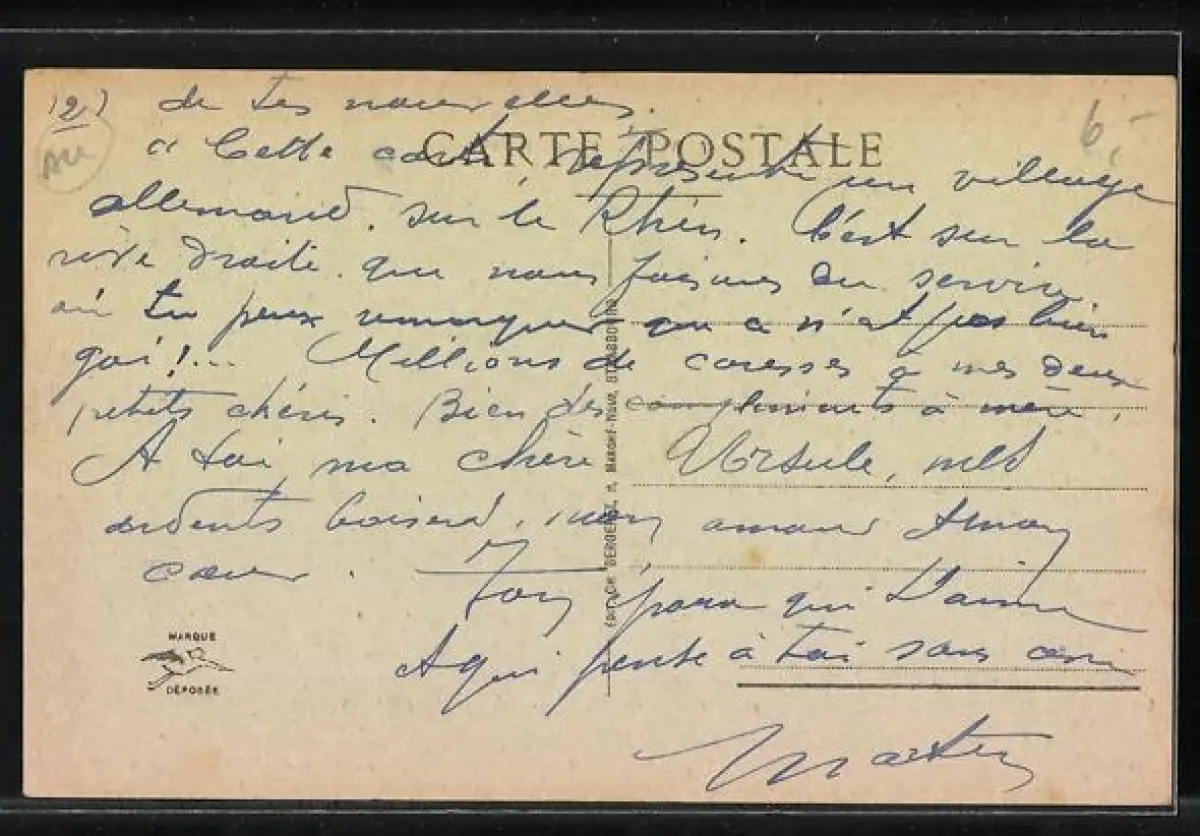 (2)
de tes nouvelles.
6,-
CARTE POSTALE
Cette carte représente un village
allemand. sur le Rhin. C'est sur la
rive droite. que nous faisons du service.
tu peux remarquer n'est pas bien
gai!... Millions de caresses à mes deux
petits chéris. Bien des compliments à mère.
A toi ma chère Ursule, mes
ardents baisers, mon amour & mon
coeur.
Ton papa qui t'aime
& qui pense à toi sans cesse
Martin
MARQUE
DÉPOSÉE